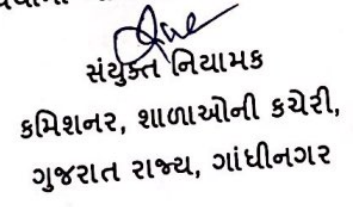 સંયુક્ત નિયામક
કમિશનર, શાળાઓની કચેરી,
ગુજરાત રાજ્ય, ગાંધીનગર